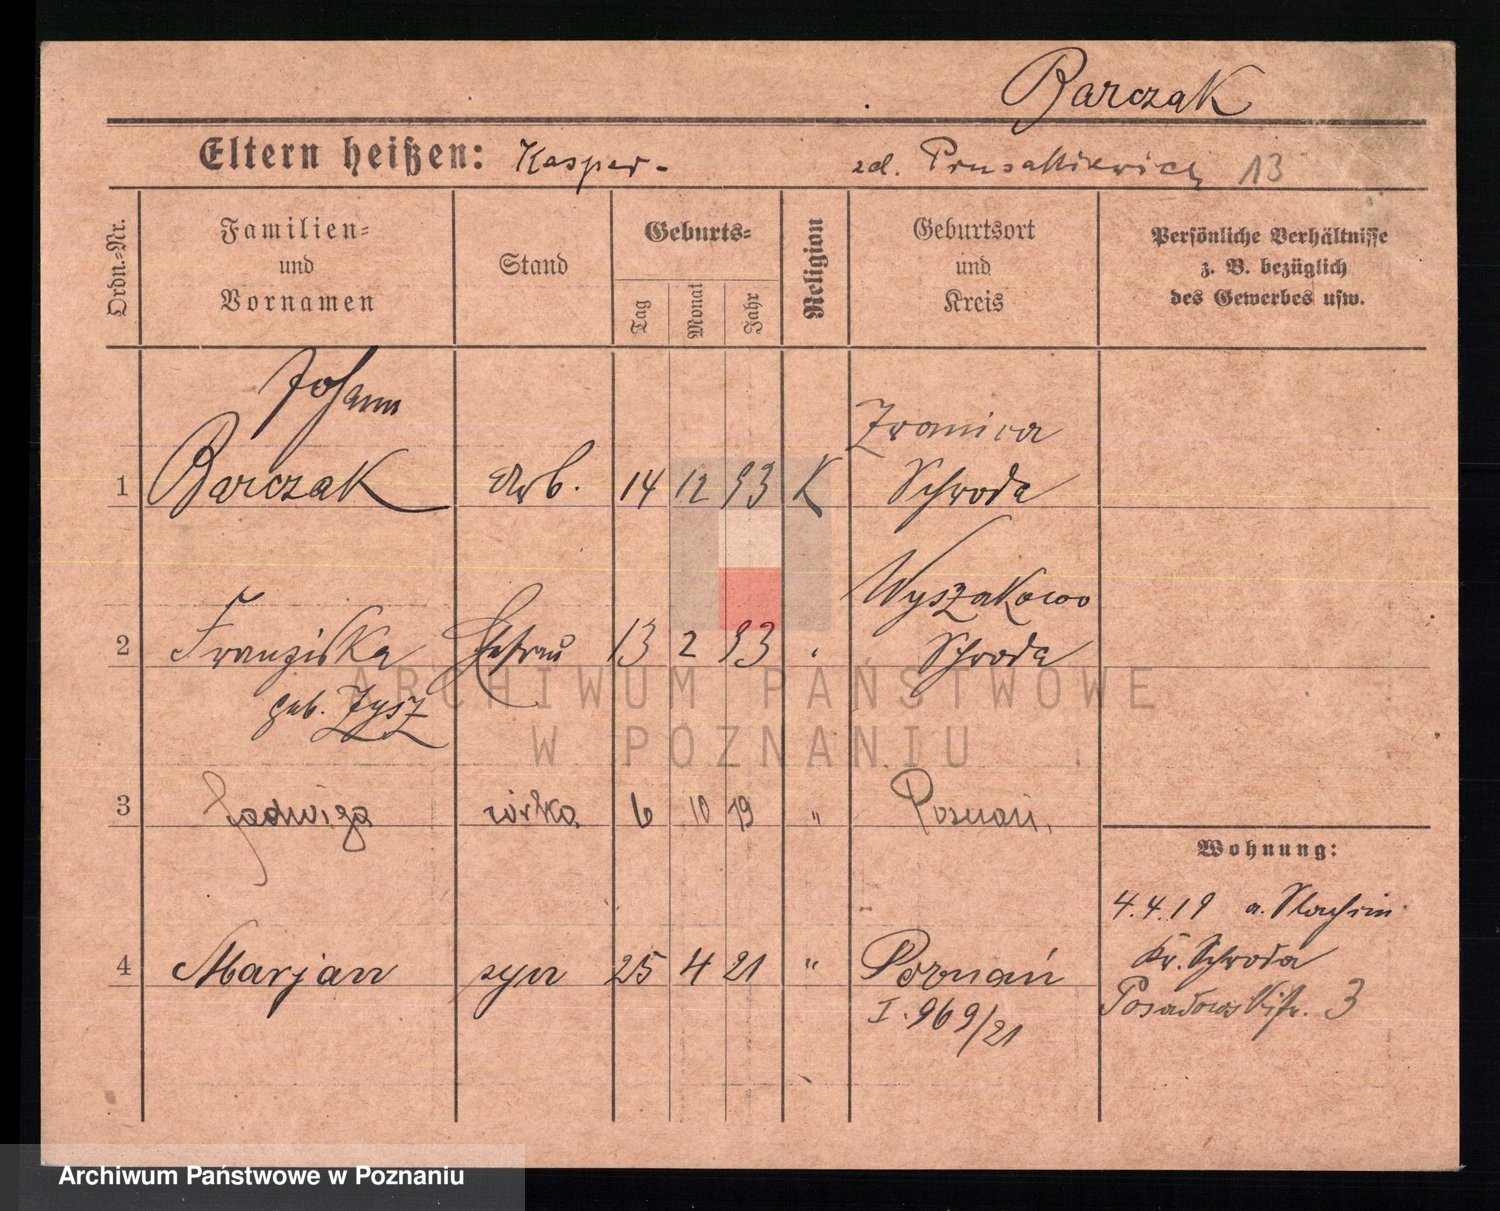 Barczak
Eltern heißen: Kasper - 13
Ordn.-Nr.
Familien-
und
Vornamen
Stand
Geburts-
Tag
Monat
Jahr
Religion
Geburtsort
und
Kreis
Persönliche Verhältnisse
z. B. bezüglich
des Gewerbes usw.
Johann
1 Barczak Arb. 14 12 93 K
Schroda
Wyszakowo
2 Franziska Ehefrau 13 2 93
Schroda
geb. Zysz
3 Jadwiga córka 6 10 19 " Poznań.
Wohnung:
4.4.19 a.
4 Marjan syn 25 4 21 " Poznań
Kr. Schroda
I. 969/21
Posadowskistr. 3
ARCHIWUM PAŃSTWOWE
W POZNANIU
Archiwum Państwowe w Poznaniu